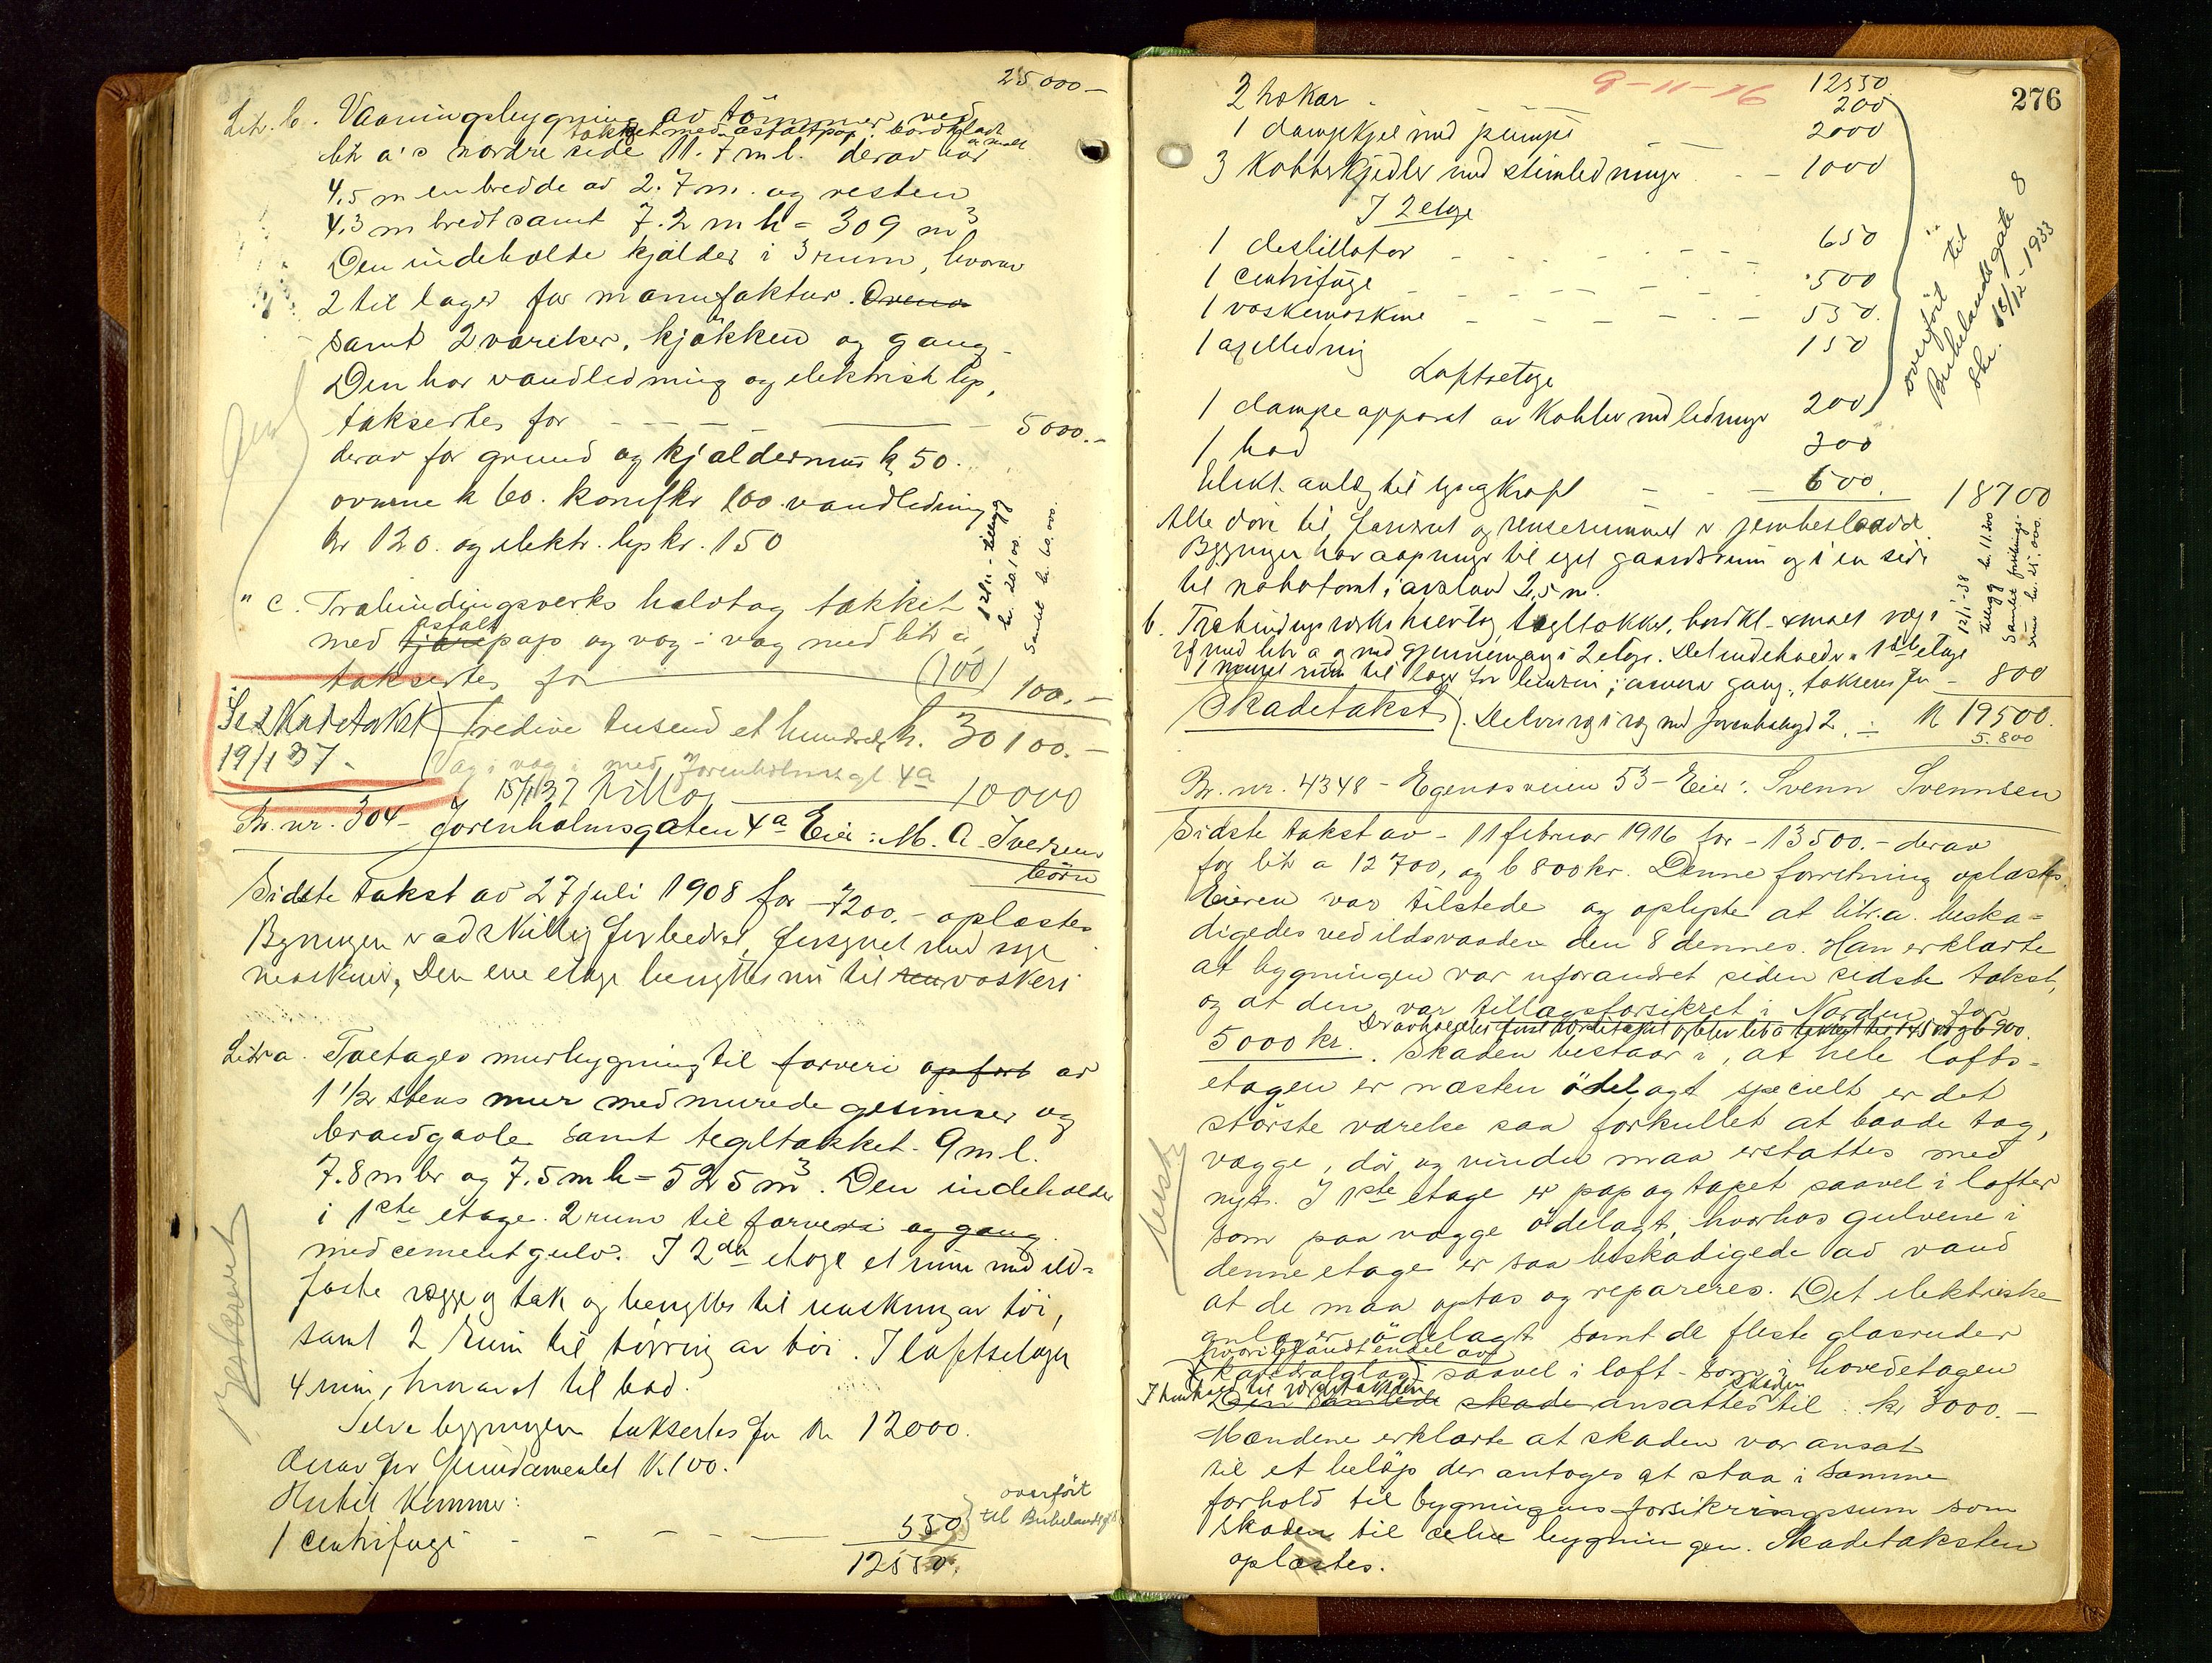 25000 –
Litr. b. Vaaningsbygning av tömmer ved
takket med asfaltpap. bordklædt
& malt
litr a's nordre side 11.7 m l. derav har
4,5 m en bredde av 2.7 m. og resten
4,3 m bredt samt 7.2 m h = 309 m³
Den indeholder kjælder i 3 rum, hvorav
2 til lager for manufaktur.
samt 2 værelser, kjøkken og gang –
Den har vandledning og elektrisk lys,
taksertes for – – – – 5000. –
derav for grund og kjældermur k 50.
ovnene k 60. komfkr 100 vandledning
kr 120. og elektr. lys kr. 150
12/11 - tillegg
kr. 20100.
Samlet kr. 60.000.
" c. Træbindingsverks halvtag takket
asfalt
med tjærepap og væg i væg med litr a,
taksertes for (100) 100. –
Se skadetakst
19/1 37 –
tredive tusend et hundrede kr. 30100. –
Væg i væg med Jorenholmsgt 4a
15/1 37 tillæg 10000
Br. nr. 304 – Jorenholmsgaten 4a Eier: M. A. Iversens
börn
Sidste takst av 27 juli 1908 for – 7200. – oplæstes
Bygningen er adskillig forbedret, forsynet med nye
maskiner, Den ene etage benyttes nu til ren vaskeri
Litr a. Toetages murbygning til farveri opført av
1 1/2 stens mur med murede gesimser og
brandgavle samt tegltakket. 9 m l.
7.8 m br og 7.5 m h = 525 m³. Den indeholder
i 1ste etage. 2 rum til farveri og gang
med cementgulv. I 2den etage et rum med ild=
faste vægge og tak og benyttes til renskning av töi,
samt 2 rum til törring av töi. I loftsetagen
4 rum, hvorav et til bad.
Selve bygningen taksertes for kr 12000.
derav for fundamentet k. 100.
Hertil kommer:
1 centrifuge – – – – 550
overfört
til Birkelandsgt 8
12550.
Beskrevet
9 - 11 - 16
276
12550.
2 karkar – 200
1 dampkjel med pumpe 2000
3 Kobberkjedler med stimledninger – – 1000
I 2 etge
1 destillator – – – – 650
1 centrifuge – – – – – 500
1 vaskemaskine – – – – – 550.
1 axelledning 150
Loftsetge
1 dampeapparat av Kobber med ledninger 200
1 bad 300
Elekt. anlæg til lys og kraft – – 600. 18700
overfört til
Birkelandsgate 8
Skr. 18/12 - 1933
Alle döre til farveri og renserummet er jernbeslaadde
Bygningen har aapninger til eget gaardsrum og i en side
til nabotomt, i avstand 2,5 m.
12/1 - 38
tillegg kr. 11.200
Samlet forsikrings-
sum kr. 25.000.
b. Træbindingsverks halvtag, tegltakket, bordkl. & malt væg i
væg med litr a og med gjennemgang i 2 etge. Det indeholder i 1ste etage
1 muret rum til lager for benzin, i annen gang, takseres for – 800
Skadetakst. Delvis væg i væg med Jorenholmsgt 2. – k 19500.
5.800
Br. nr. 4348 – Egenæsveien 53 – Eier: Svenn Svennsen
Sidste takst av – 11 februar 1916 for – 13500. – derav
for litr a 12700, og b 800 kr. Denne forretning oplæstes.
Eieren var tilstede og oplyste at litr. a. beska=
digedes ved ildsvaaden den 8 dennes. Han erklærte
at bygningen var uforandret siden sidste takst,
og at den var tillægsforsikret i Norden for
5000 kr. Skaden bestaar i, at hele lofts-
etagen er næsten ödelagt specielt er det
störste værelse saa forkullet at baade tag,
vægge, dör og vinduer maa erstattes med
nyt. I 1ste etage er pap og tapet saavel i lofter
som paa vægge ödelagt, hvorhos gulvene i
denne etage er saa beskadigede av vand
at de maa optas og repareres. Det elektriske
anlæg er ödelagt samt de fleste glasruder
hvoriblandt endel av
katedralglas saavel i loft – som i hovedetagen
I henhold til
skaden
Den samlede skade ansattes til kr 3000. –
Mændene erklærte at skaden var ansat
til et belöp der antoges at staa i samme
forhold til bygningens forsikringssum som
skaden til selve bygningen. Skadetaksten
oplæstes.